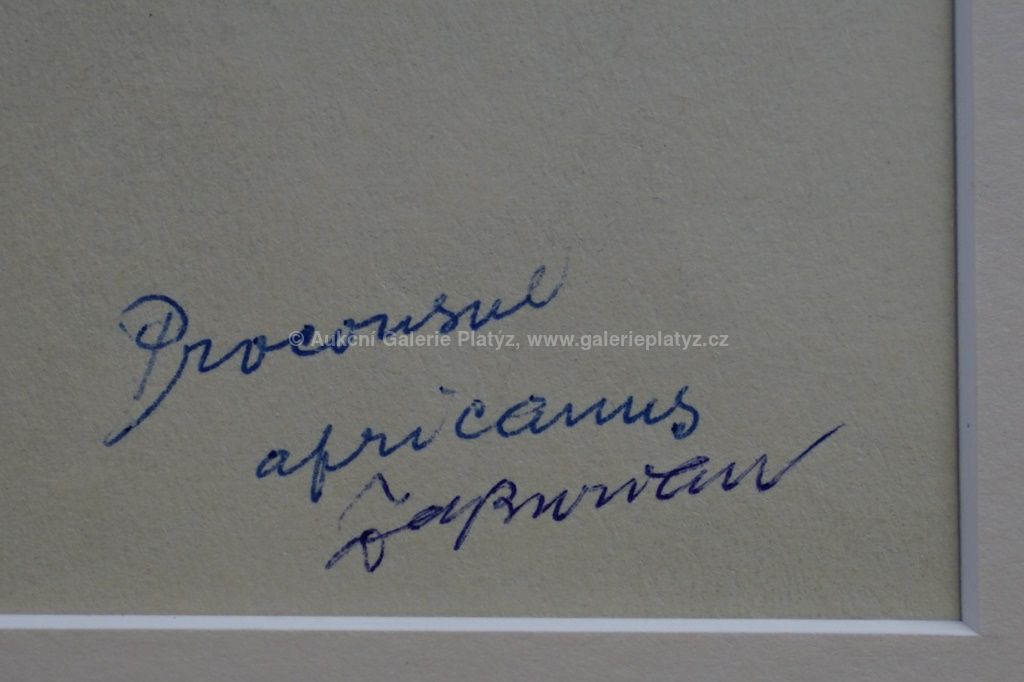 Proconsul
© Aukční Galerie Platýz, www.galerieplatyz.cz
africanus